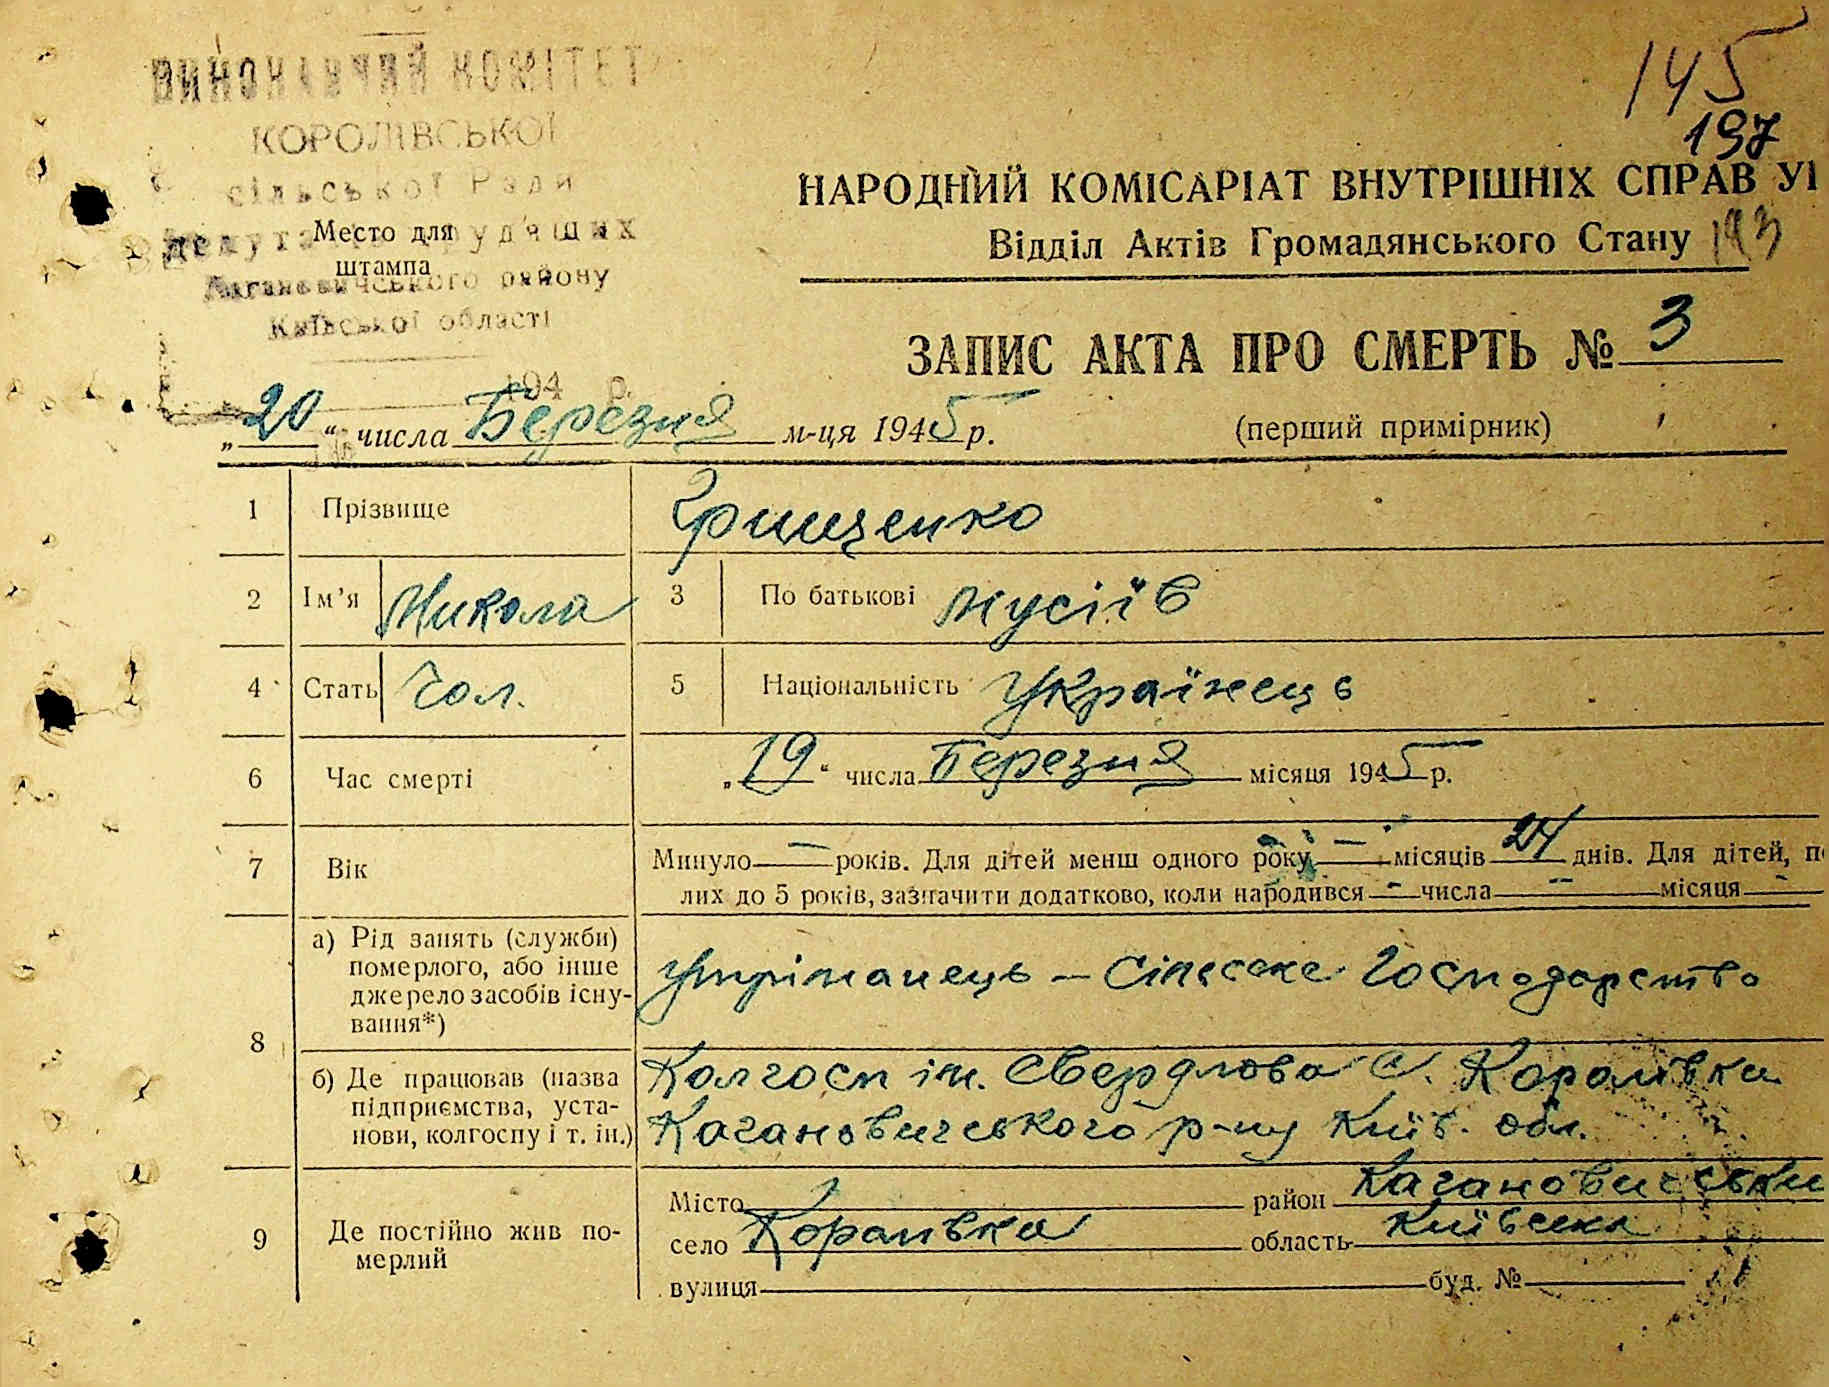 ВИКОНАВЧИЙ КОМІТЕТ
КОРОЛІВСЬКОЇ
сільської Ради
депутатів трудящих
Кагановичського району
Київської області
194 р.
Место для
штампа
145
197
193
НАРОДНИЙ КОМІСАРІАТ ВНУТРІШНІХ СПРАВ У
Відділ Актів Громадянського Стану
ЗАПИС АКТА ПРО СМЕРТЬ № 3
„20“ числа Березня м-ця 1945 р.
(перший примірник)
1 Прізвище Грищенко
2 Ім’я Микола 3 По батькові Мусіїв
4 Стать Чол. 5 Національність Українець
6 Час смерті „19“ числа Березня місяця 1945 р.
7 Вік Минуло — років. Для дітей менш одного року — місяців 24 днів. Для дітей, п
лих до 5 років, зазначити додатково, коли народився - числа - місяця -
8 а) Рід занять (служби)
померлого, або інше
джерело засобів існу-
вання*)
Утріманець – Сільське Господарство
б) Де працював (назва
підприємства, уста-
нови, колгоспу і т. ін.)
Колгосп ім. Свердлова с. Королівка
Кагановичського р-ну Київ. обл.
9 Де постійно жив по-
мерлий
Місто район Кагановичськи
село Королівка область Київська
вулиця буд. №